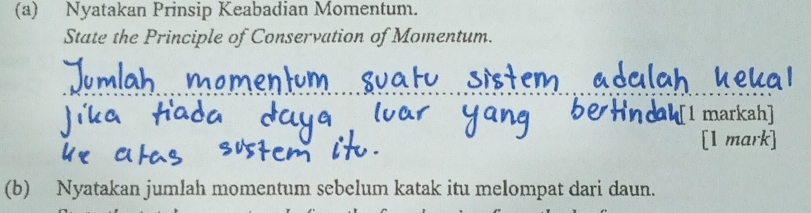 (a) Nyatakan Prinsip Keabadian Momentum.
State the Principle of Conservation of Momentum.
Jumlah momentum suatu sistem adalah kekal
jika tiada daya luar yang bertindak [1 markah]
ke atas sistem itu. [1 mark]
(b) Nyatakan jumlah momentum sebelum katak itu melompat dari daun.